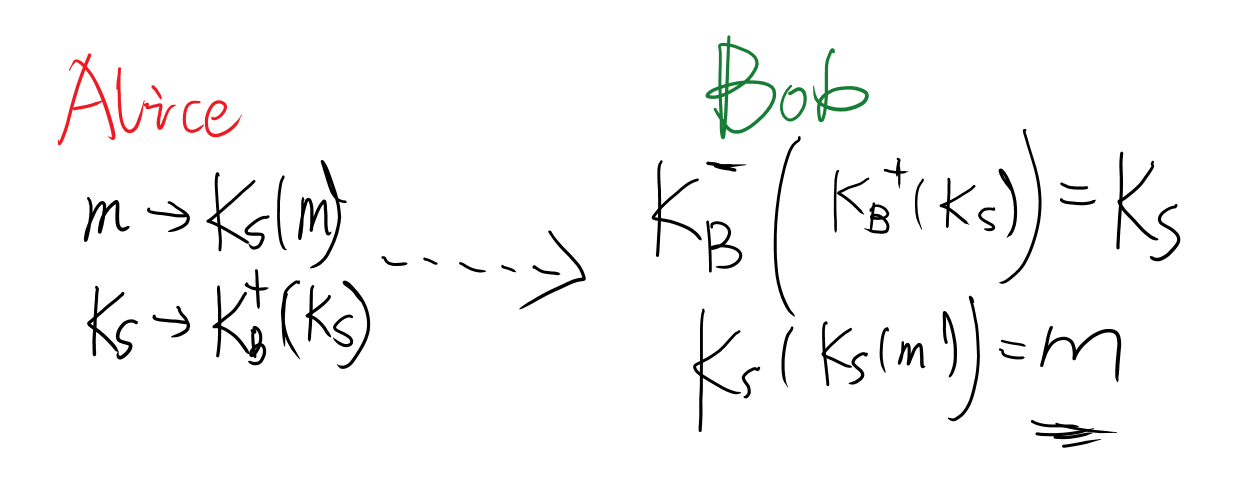 Alice
m → K_S(m)
K_S → K_B^+(K_S)
Bob
K_B^-(K_B^+(K_S)) = K_S
K_S(K_S(m)) = m